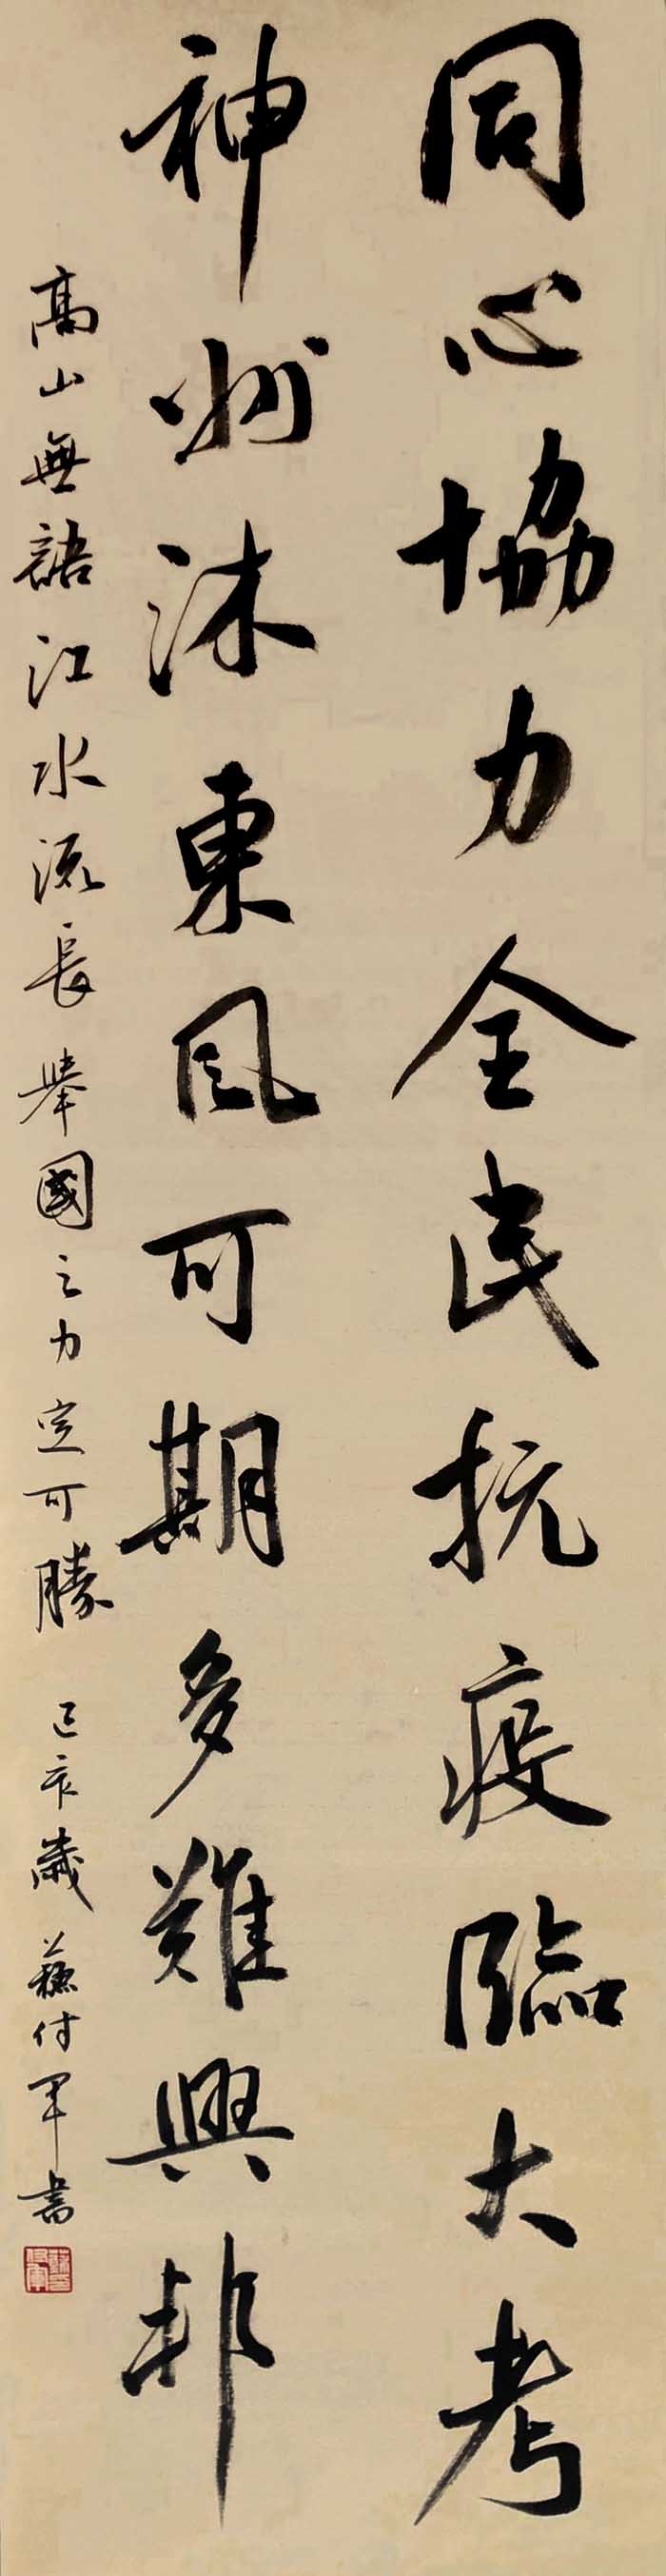 同心協力全民抗疫臨大考
神州沐東風可期多難興邦
高山無語江水流長舉國之力定可勝 己亥歲 蘇付軍書